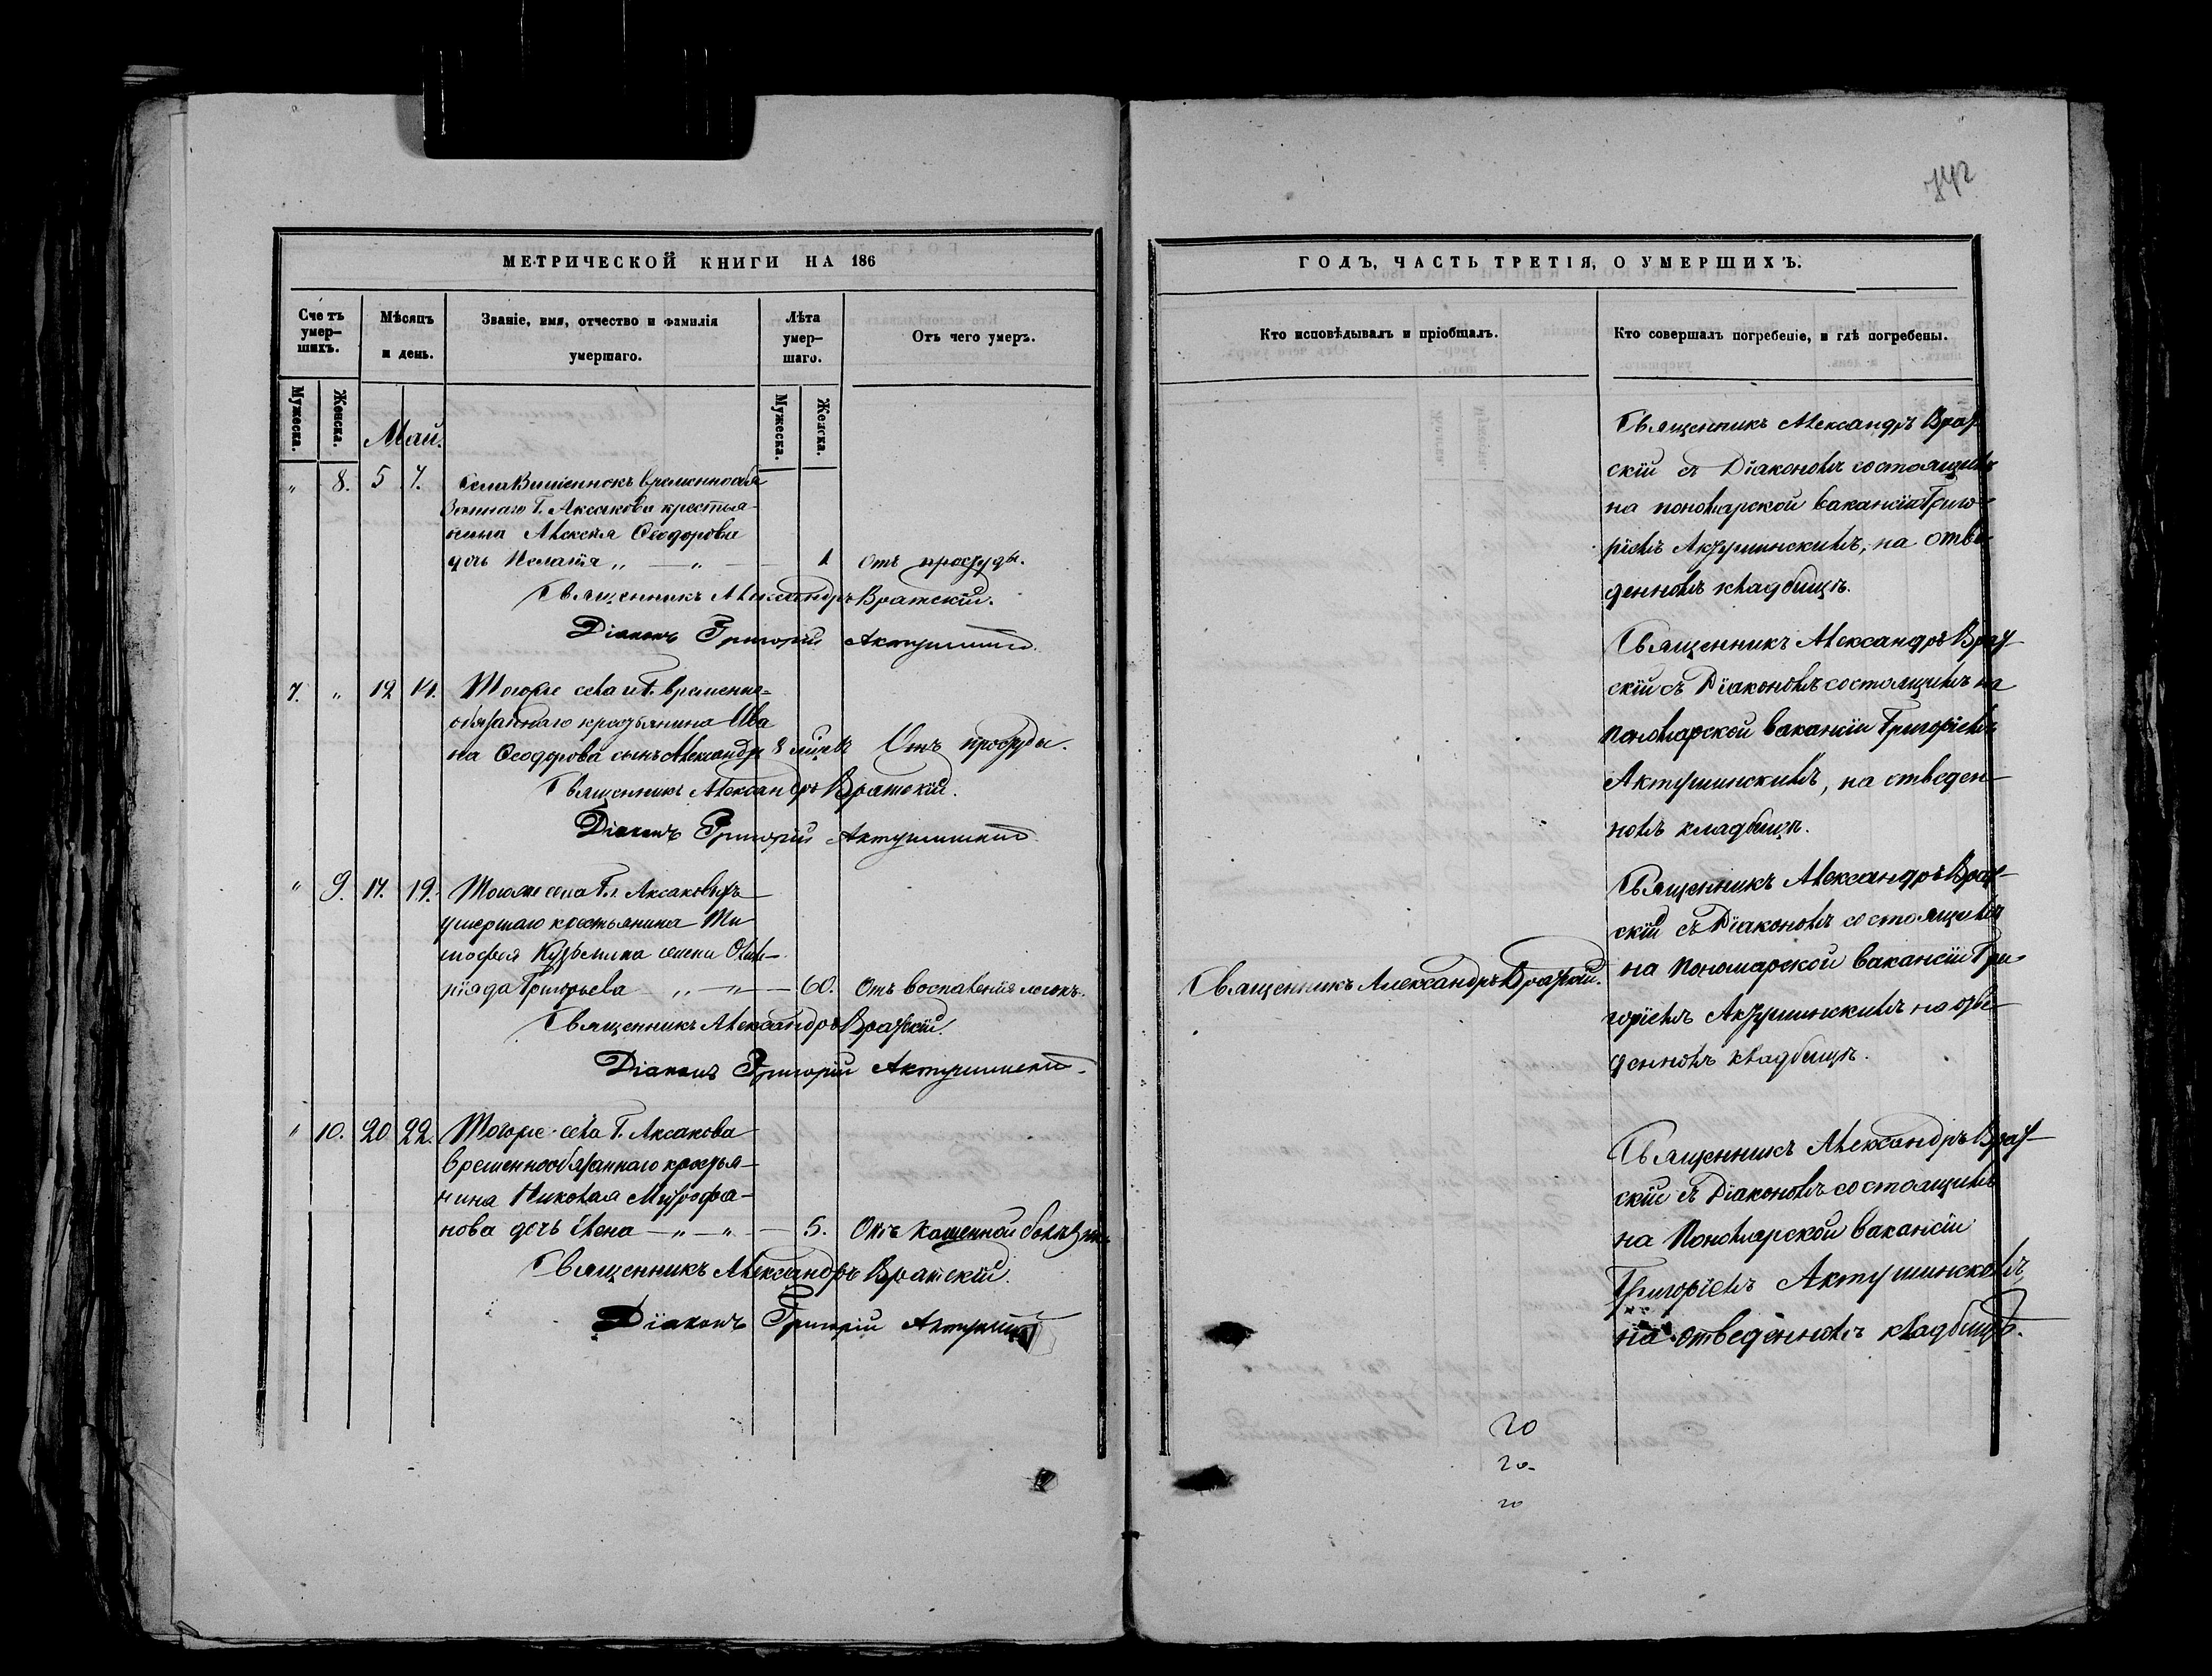 742
МЕТРИЧЕСКОЙ КНИГИ НА 186
Счетъ умер-шихъ.
Мѣсяцъ и день.
Званіе, имя, отчество и фамилія умершаго.
Лѣта умер-шаго.
Отъ чего умеръ.
Мужеска.
Женска.
Мужеска.
Женска.
Май.
" 8. 5 7. Села временнообя
заннаго Г. Аксакова крестья-
нина Алексѣя Ѳеодорова
дочь Пелагія „ — „ — 1 Отъ простуды.
Священникъ Александръ Вратскій.
Діаконъ Григорій Актушинскій.
7. " 12 14. Тогоже села и Г. временно-
обязаннаго крестьянина Ива
на Ѳеодорова сынъ Александръ 8 мцевъ Отъ простуды.
Священникъ Александръ Вратскій.
Діаконъ Григорій Актушинскій.
" 9. 17. 19. Тогоже села Г.г. Аксаковыхъ
умершаго крестьянина Ти
мофея Кузьмина жена Олим-
піада Григорьева „ — „ — 60. Отъ воспаленія легокъ.
Священникъ Александръ Вратскій.
Діаконъ Григорій Актушинскій.
" 10. 20 22. Тогоже села Г. Аксакова
временнообязаннаго крестья-
нина Николая Митрофа-
нова дочь Елена — „ — „ — 5. Отъ болѣзни
Священникъ Александръ Вратскій.
Діаконъ Григорій Актушинскій
ГОДЪ, ЧАСТЬ ТРЕТІЯ, О УМЕРШИХЪ.
Кто исповѣдывалъ и пріобщалъ.
Кто совершалъ погребеніе, и гдѣ погребены.
Священникъ Александръ Врат
скій съ Діакономъ состоящимъ
на пономарской вакансіи Григо-
ріемъ Актушинскимъ, на отве
денномъ кладбищѣ.
Священникъ Александръ Врат-
скій съ Діакономъ состоящимъ на
пономарской вакансіи Григоріемъ
Актушинскимъ, на отведен-
номъ кладбищѣ.
Священникъ Александръ Врат-
скій съ Діакономъ состоящимъ
Священникъ Александръ Вратскій.
на пономарской вакансіи Гри-
горіемъ Актушинскимъ на отве-
денномъ кладбищѣ.
Священникъ Александръ Врат-
скій съ Діакономъ состоящимъ
на Пономарской вакансіи
Григоріемъ Актушинскимъ,
на отведенномъ кладбищѣ.
20
20
20